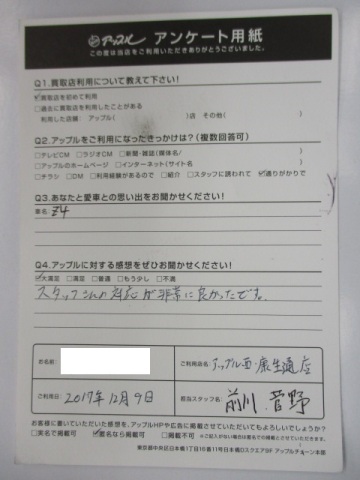 アップル アンケート用紙
この度は当店をご利用いただきありがとうございました。
Q1.買取店利用について教えて下さい!
☑買取店を初めて利用
□過去に買取店を利用したことがある
利用した店舗: アップル( )店 その他( )
Q2.アップルをご利用になったきっかけは?(複数回答可)
□テレビCM □ラジオCM □新聞・雑誌(媒体名/ )
□アップルのホームページ □インターネット(サイト名 )
□チラシ □DM □利用経験があるので □紹介 □スタッフに誘われて ☑通りがかりで
Q3.あなたと愛車との思い出をお聞かせください!
車名 Z4
Q4.アップルに対する感想をぜひお聞かせください!
☑大満足 □満足 □普通 □もう少し □不満
スタッフさんの対応が非常に良かったです。
お名前 ご利用店名 アップル西・康生通店
ご利用日 2017年12月9日 担当スタッフ名 前川 菅野
お客様に書いていただいた感想を、アップルHPや広告に掲載させていただいてもよろしいでしょうか?
□実名で掲載可 ☑匿名なら掲載可 □掲載不可 ※ご記入がない場合は匿名での掲載とさせていただきます。
東京都中央区日本橋1丁目16番11号日本橋Dスクエア5F アップルチェーン本部